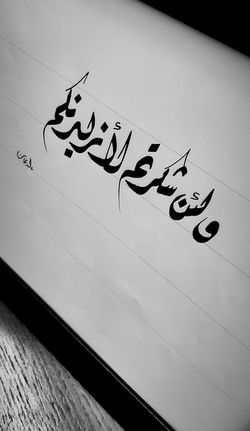 ولئن شكرتم لأزيدنكم